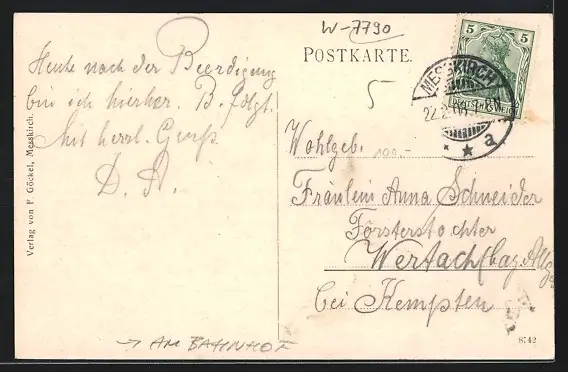 W-7790
POSTKARTE.
5
5
MESSKIRCH
22.2.
a
5
Heute nach der Beerdigung
bin ich hierher. B. folgt.
Mit herzl. Gruß
D. A.
Wohlgeb.
100.-
Fräulein Anna Schneider
Försterstochter
Wertach (bay. Allg.
bei Kempten
Verlag von F. Göckel, Messkirch.
→ AM BAHNHOF
8742